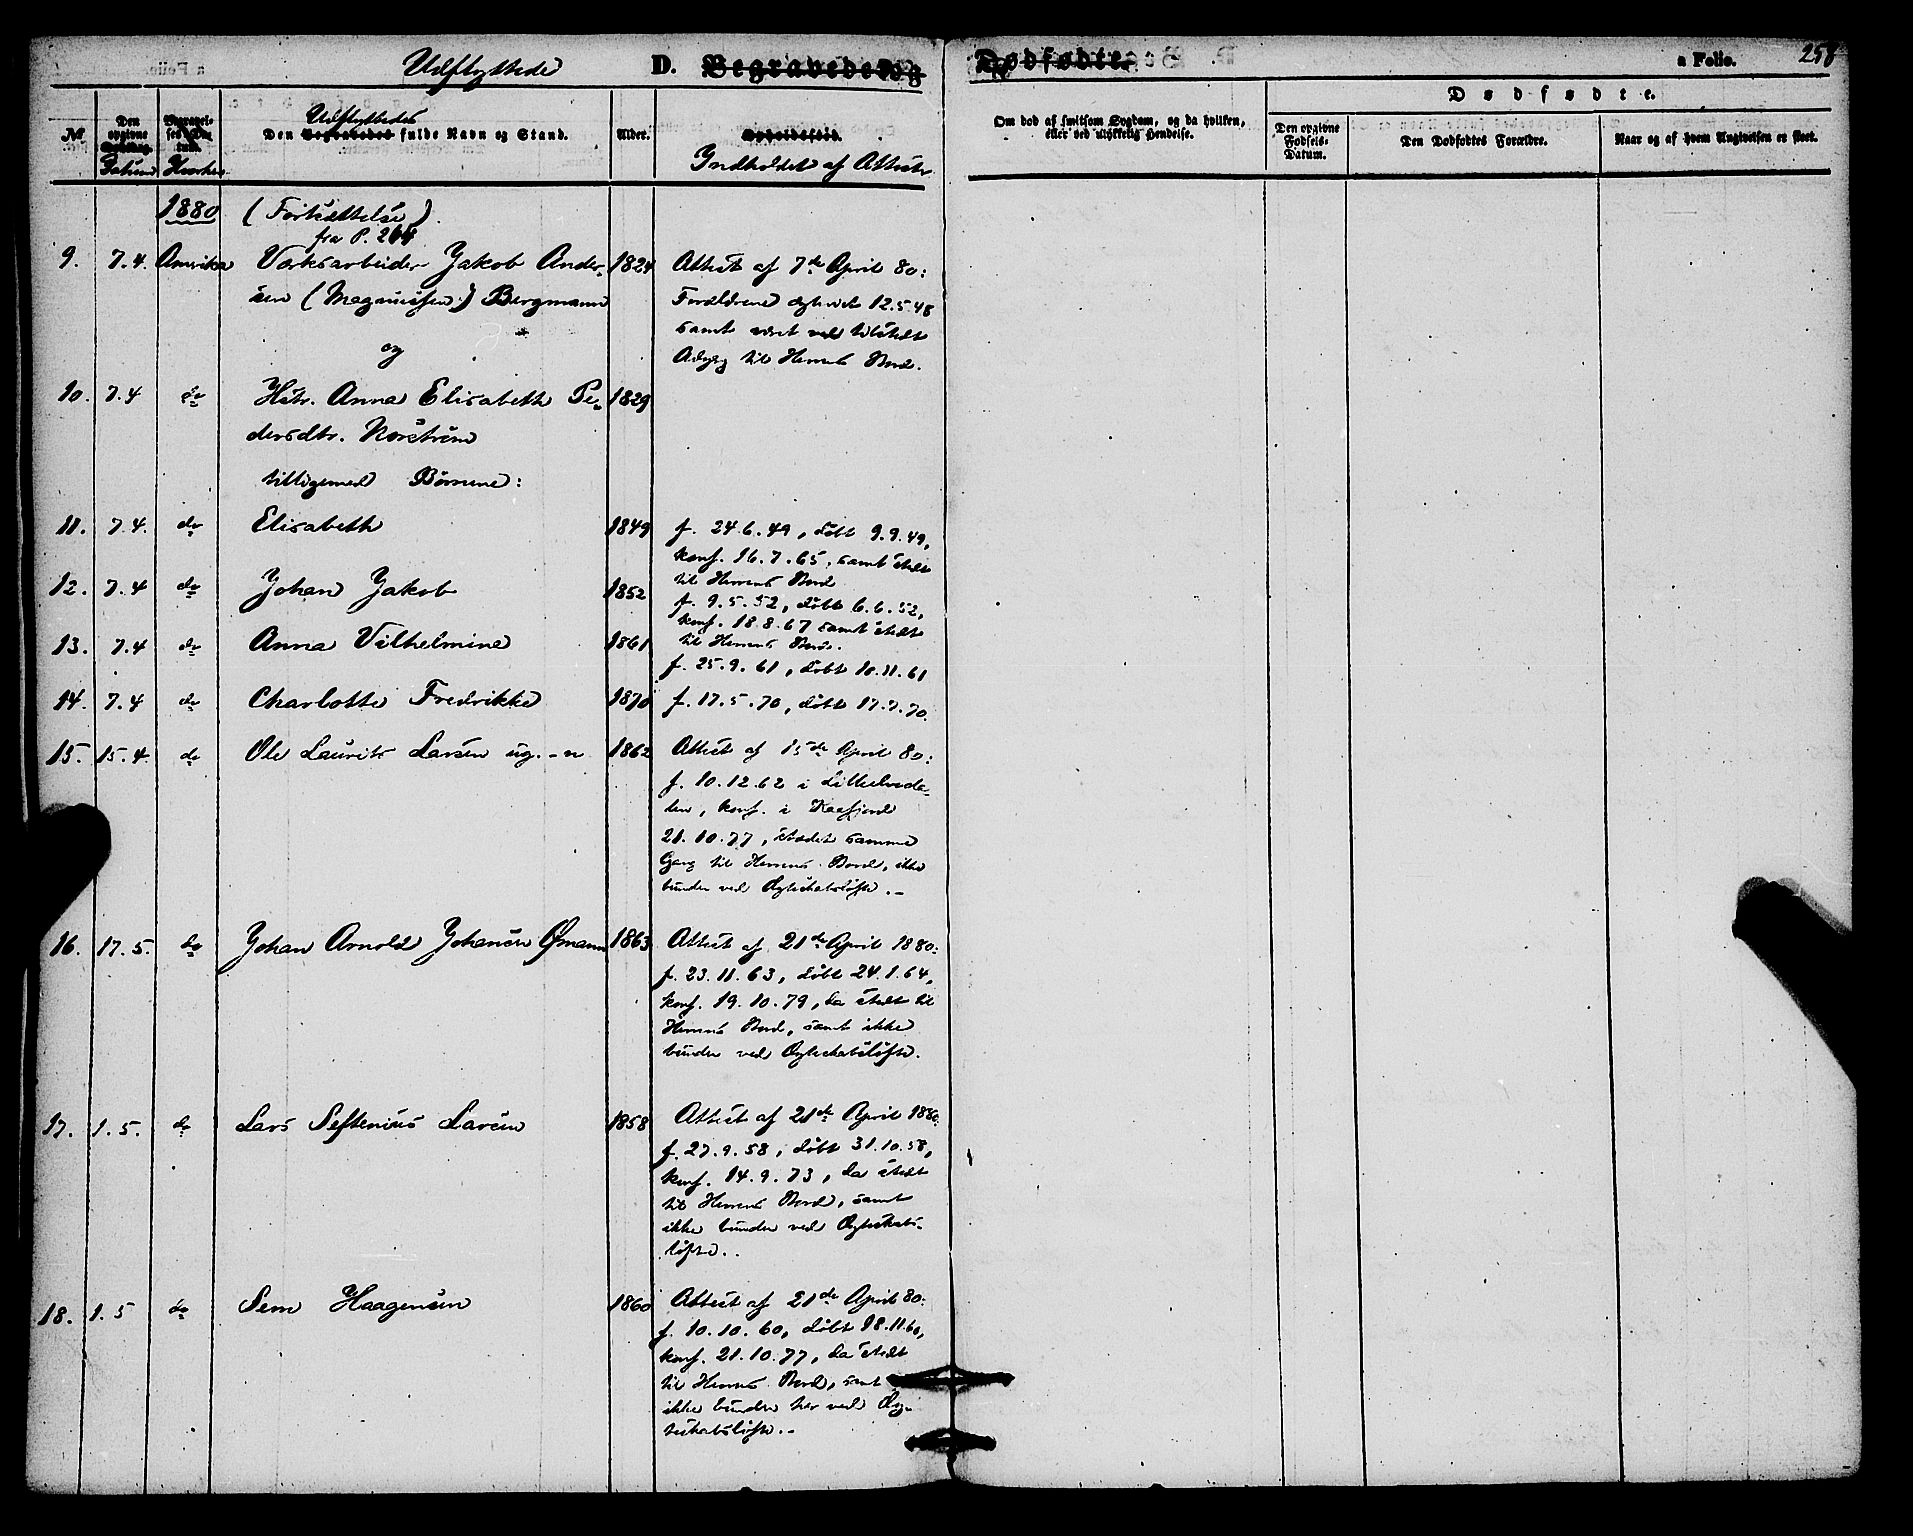 Udflyttede D. Begravede og Dødfødte. a Folio. 258
№ Den opgivne Dødsdag. Datum
Begravelses Datum. Hvorhen
Udflyttedes
Den Begravedes fulde Navn og Stand.
Alder.
Opholdssted.
Indholdet af Attest
Om død af smitsom Sygdom, og da hvilken, eller ved ulykkelig Hendelse.
Dødfødte.
Den opgivne Fødsels-Datum.
Den Dødfødtes Forældre.
Naar og af hvem Angivelsen er skeet.
1880 (Fortsættelse)
fra P. 264
9. 7.4. Amerika Værksarbeider Jakob Ander- 1824 Attest af 7de April 80:
sen (Magnussen) Bergmann Forældrene ægteviet 12.5.48
samt været ved tilstedt
og Adgang til Herrens Bord.
10. 7.4 do Hstr. Anna Elisabeth Pe- 1829
dersdtr. Norström
tilligemed Børnene:
11. 7.4. do Elisabeth 1849 f. 24.6.49, døbt 9.9.49,
konf. 16.7.65, samt stedt
til Herrens Bord
12. 7.4 do Johan Jakob 1852 f. 9.5.52, døbt 6.6.52,
konf. 18.8.67 samt stedt
til Herrens Bord.
13. 7.4 do Anna Vilhelmine 1861 f. 25.9.61, døbt 10.11.61
14. 7.4 do Charlotte Fredrikke 1870 f. 17.5.70, døbt 17.7.70.
15. 15.4 do Ole Laurits Larsen ug.-n 1862 Attest af 15de April 80:
f. 10.12.62 i Lilleelveda-
len, konf. i Kaafjord
21.10.77, stædet samme
Gang til Herrens Bord, ikke
bunden ved Ægteskabsløfte.-
16. 17.5. do Johan Arnold Johansen Ømann 1863 Attest af 21de April 1880:
f. 23.11.63, døbt 24.1.64,
konf. 19.10.79, da stedt til
Herrens Bord, samt ikke
bunden ved Ægteskabsløfte.
17. 1.5. do Lars Seftenius Larsen 1858 Attest af 21de April 1880:
f. 27.9.58, døbt 31.10.58,
konf. 14.9.73, da stedt
til Herrens Bord, samt
ikke bunden ved Ægteskabs-
løfte..
18. 1.5 do Sem Haagensen 1860 Attest af 21de April 80:
f. 10.10.60, døbt 18.11.60,
konf. 21.10.77, da stedt
til Herrens Bord, samt
ikke bunden her ved Æg-
teskabsløfte.-